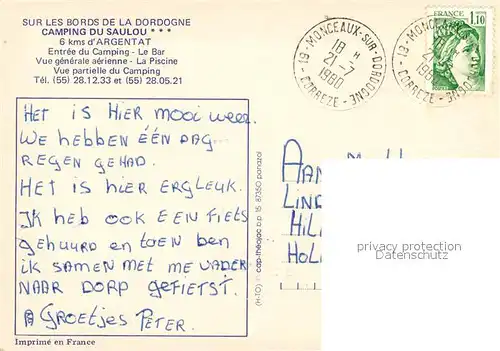 SUR LES BORDS DE LA DORDOGNE
CAMPING DU SAULOU ***
6 kms d'ARGENTAT
Entrée du Camping - Le Bar
Vue générale aérienne - La Piscine
Vue partielle du Camping
Tél. (55) 28.12.33 et (55) 28.05.21
HET IS HIER MOOI weer.
WE HEBBEN ÉÉN DAG
REGEN GEHAD.
HET IS HIER ERG LEUK.
IK HEB OOK EEN FIETS
gehuurd en toen ben
ik SAMEN MET ME VADER
NAAR DORP gefietst.
GROETJES PETER.
Imprimé en France
(H-TO) in cap-théojac b.p. 15 87350 panazol
19 - MONCEAUX-SUR-DORDOGNE -
18 H
21-7
1980
CORREZE
FRANCE
1,10
POSTES
19 - MONCEAUX
21
198
DOGNE - CORREZE
AAN
LIND
HIL
HOL
privacy protection
Datenschutz